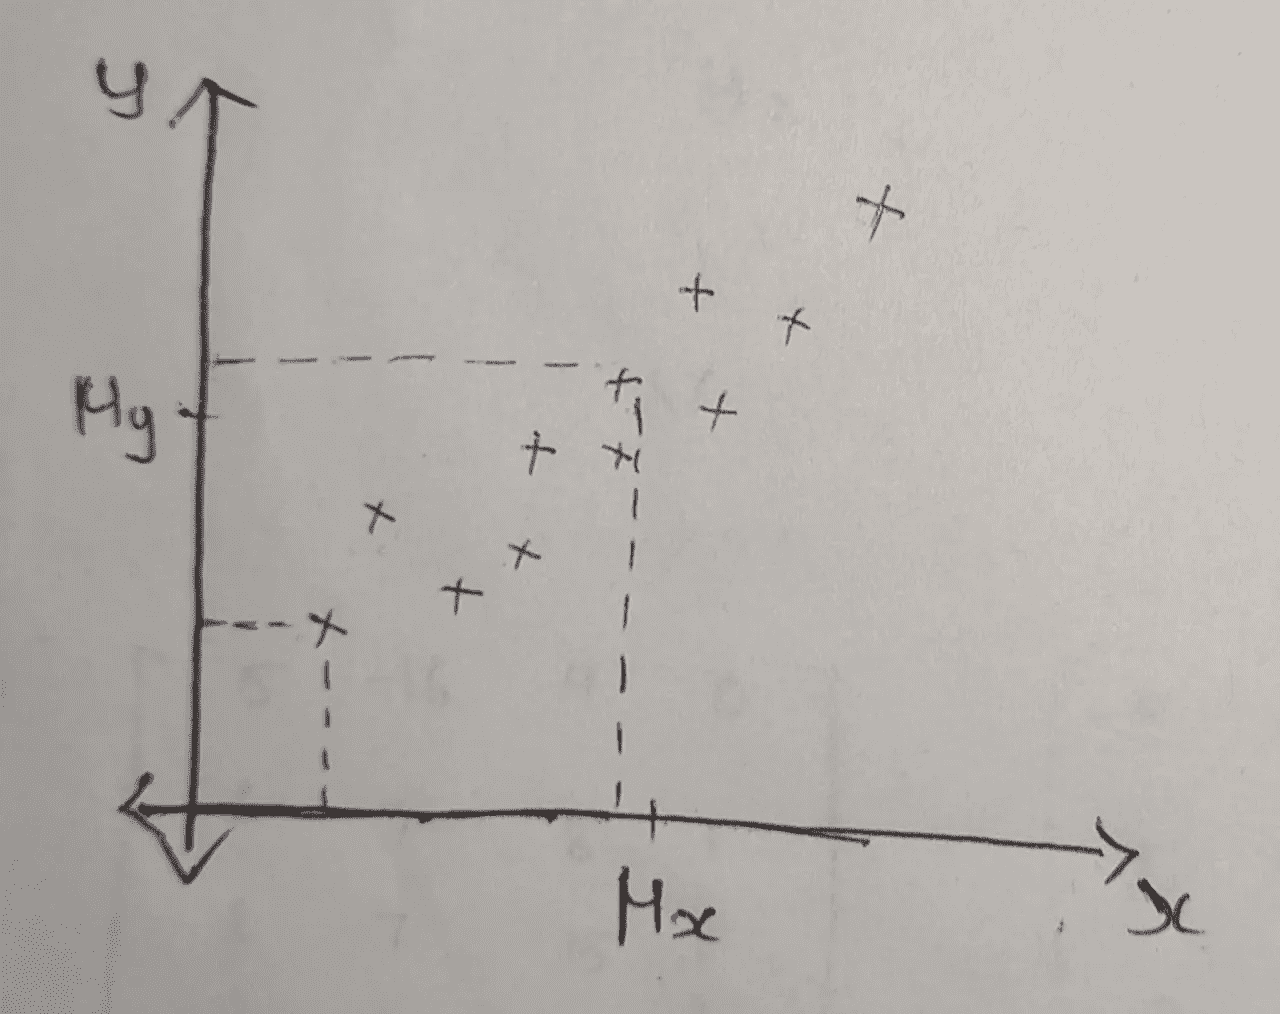 y
μy
μx
x